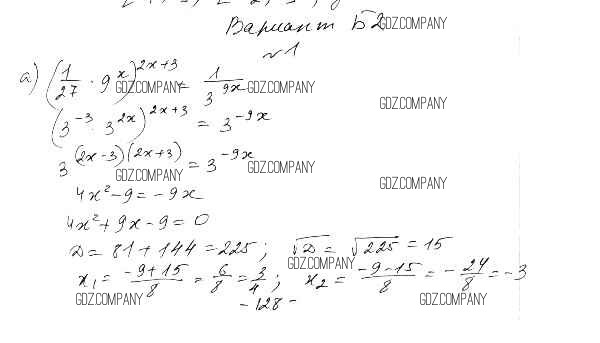 Вариант Б2 GDZ.COMPANY
№1
а) (1/27 · 9^x)^(2x+3) = 1/3^(9x) GDZ.COMPANY GDZ.COMPANY
GDZ.COMPANY
(3^(-3) · 3^(2x))^(2x+3) = 3^(-9x)
3^((2x-3)(2x+3)) = 3^(-9x) GDZ.COMPANY
GDZ.COMPANY GDZ.COMPANY
4x² - 9 = -9x
4x² + 9x - 9 = 0
D = 81 + 144 = 225; √D = √225 = 15
GDZ.COMPANY
x₁ = (-9+15)/8 = 6/8 = 3/4; x₂ = (-9-15)/8 = -24/8 = -3
GDZ.COMPANY GDZ.COMPANY
- 128 -